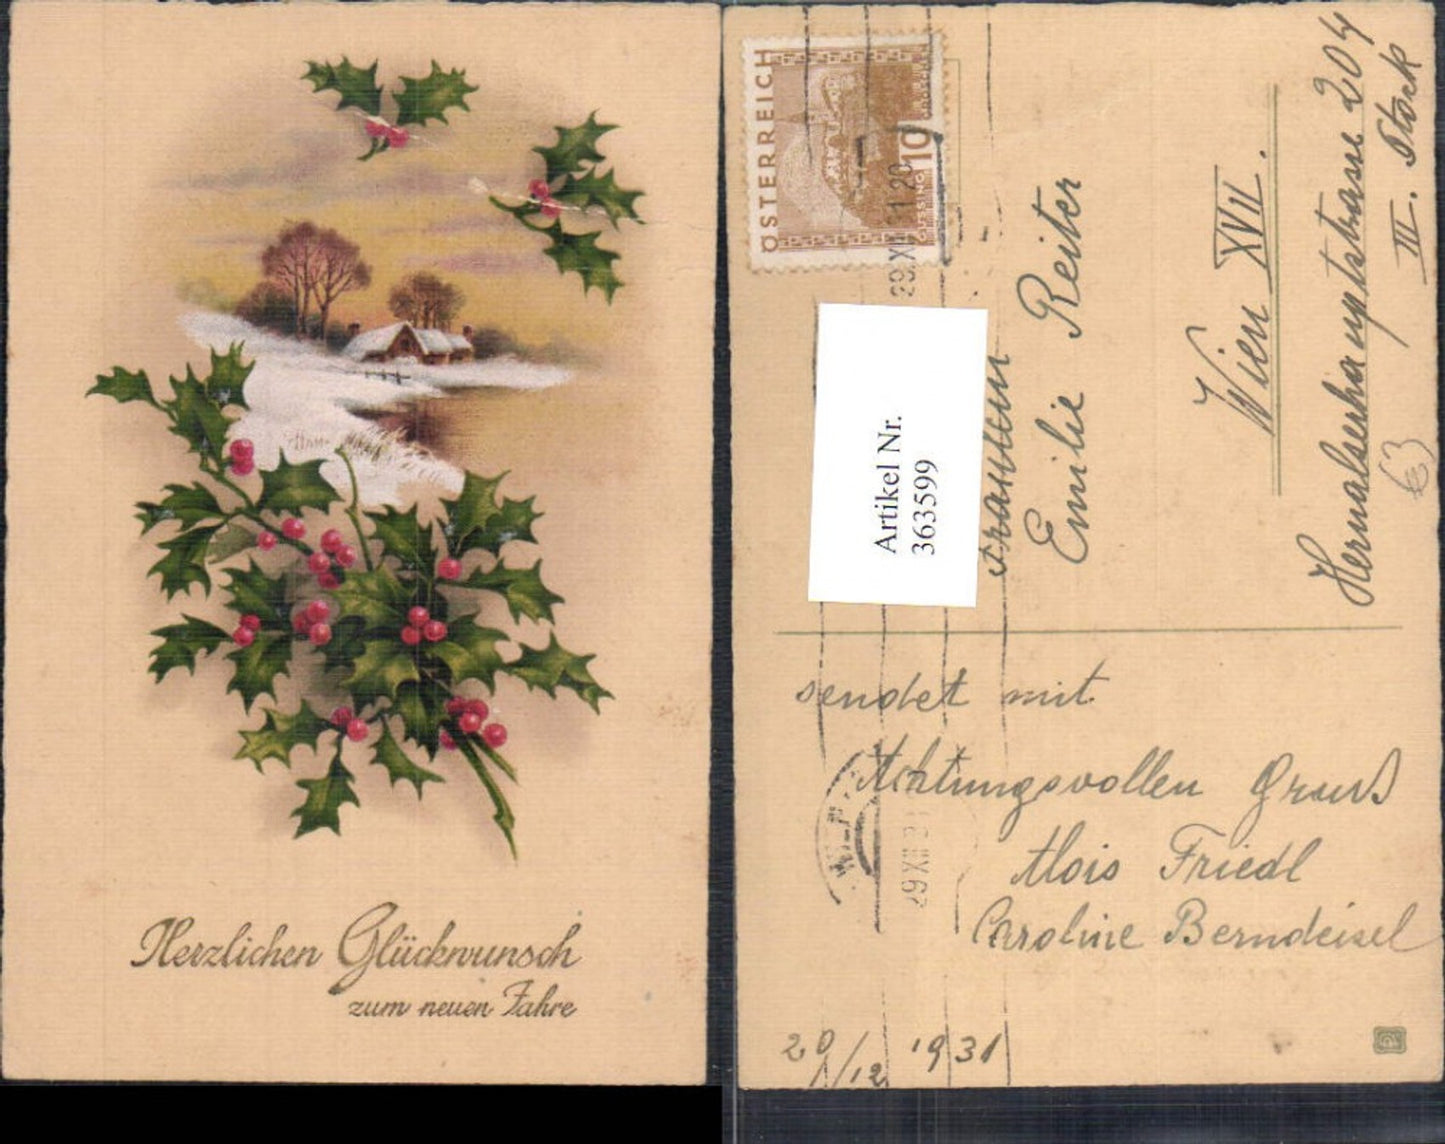 Herzlichen Glückwunsch
zum neuen Jahre
ÖSTERREICH
10
GÜSSING
29.XII.31.20
Artikel Nr.
363599
Emilie Reiter
Wien XVII.
Hernalserhauptstrasse 204
III. Stock
63
sendet mit
Achtungsvollen Gruß
Alois Friedl
Caroline Berndeisel
20/12 1931
WIEN
29 XII 31